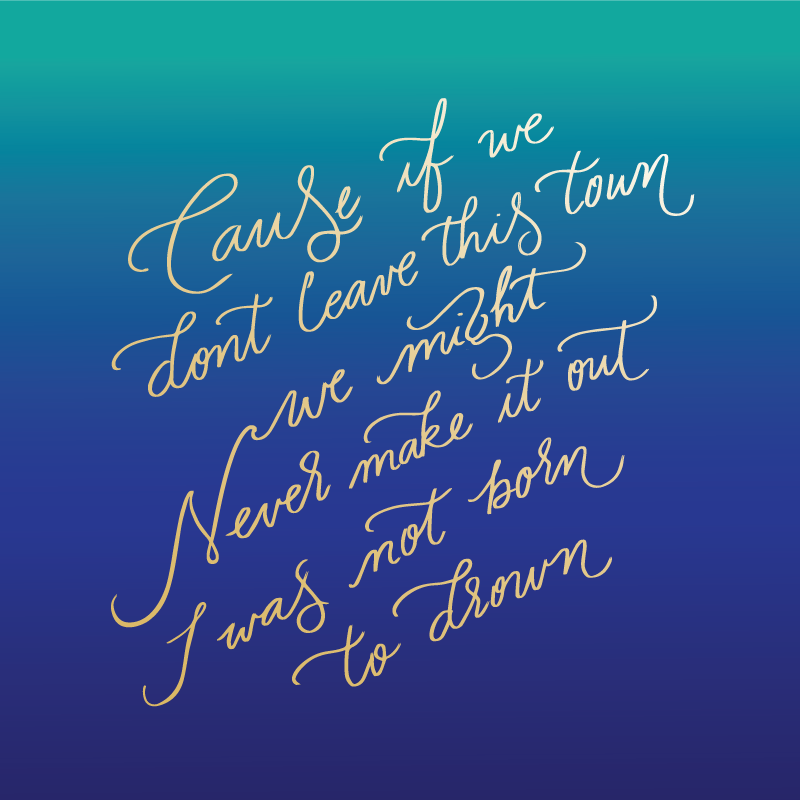 Cause if we
dont leave this town
we might
Never make it out
I was not born
to drown